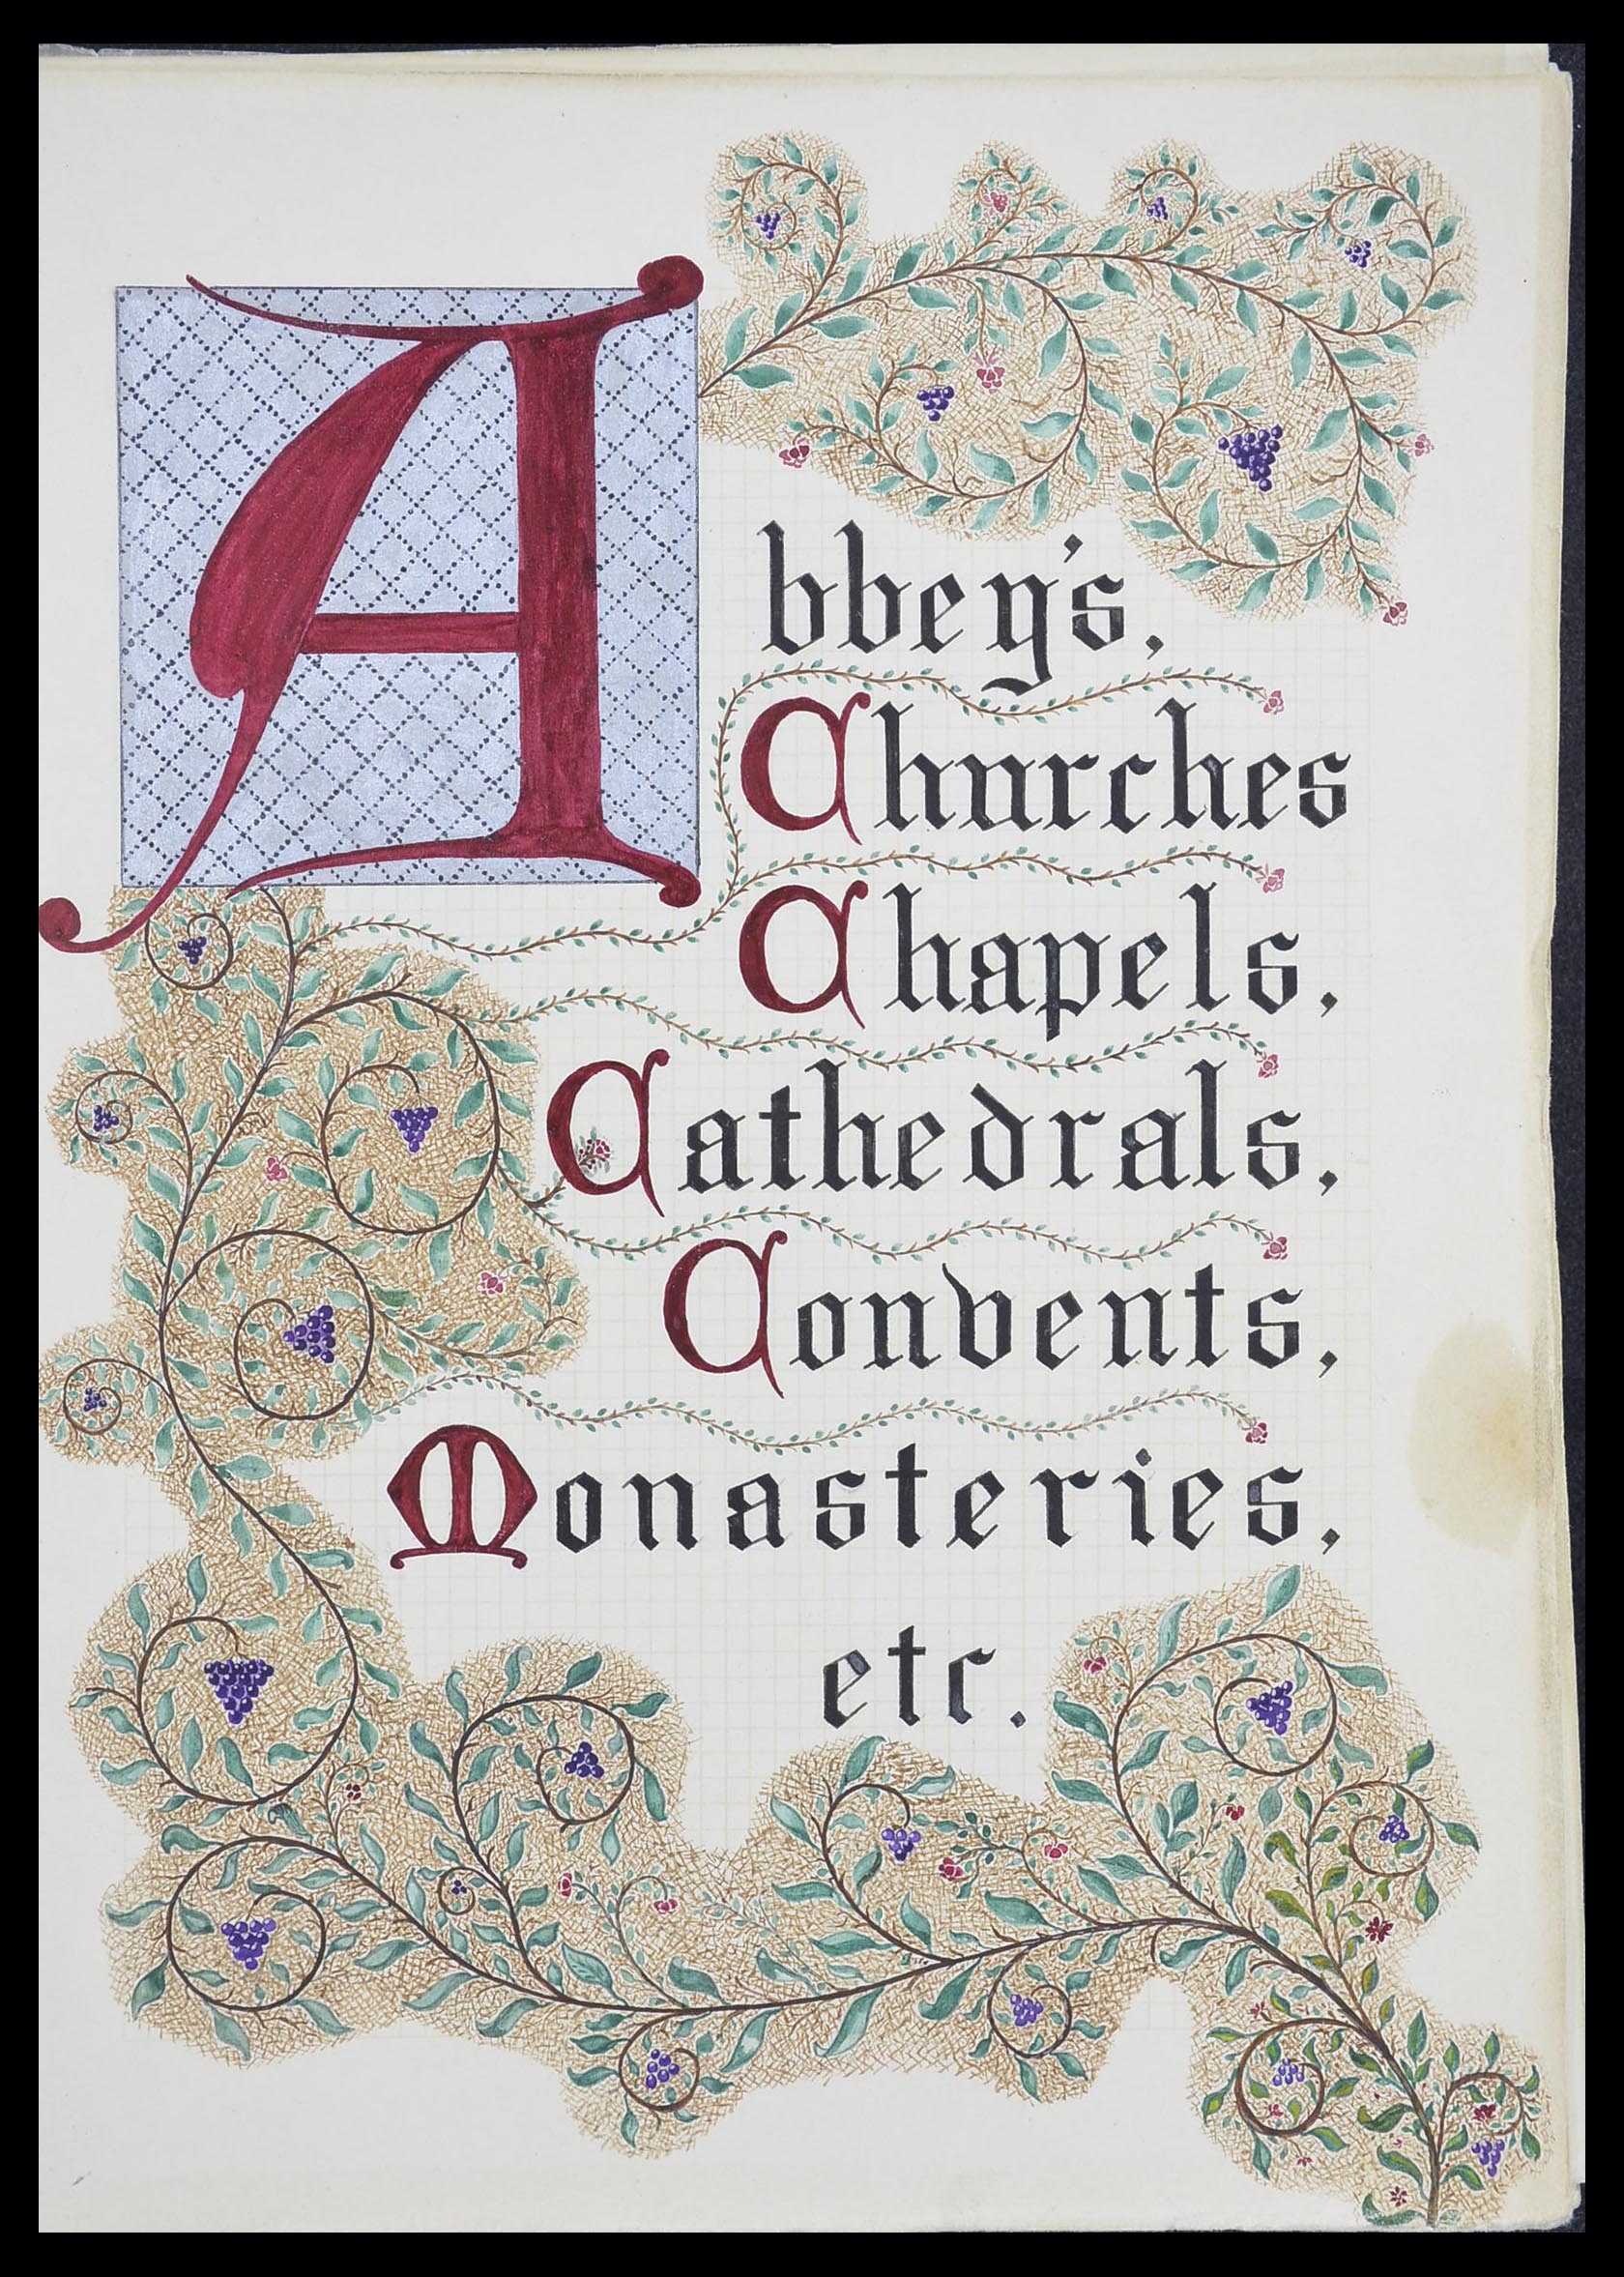 Abbey's,
Churches
Chapels,
Cathedrals,
Convents,
Monasteries,
etc.